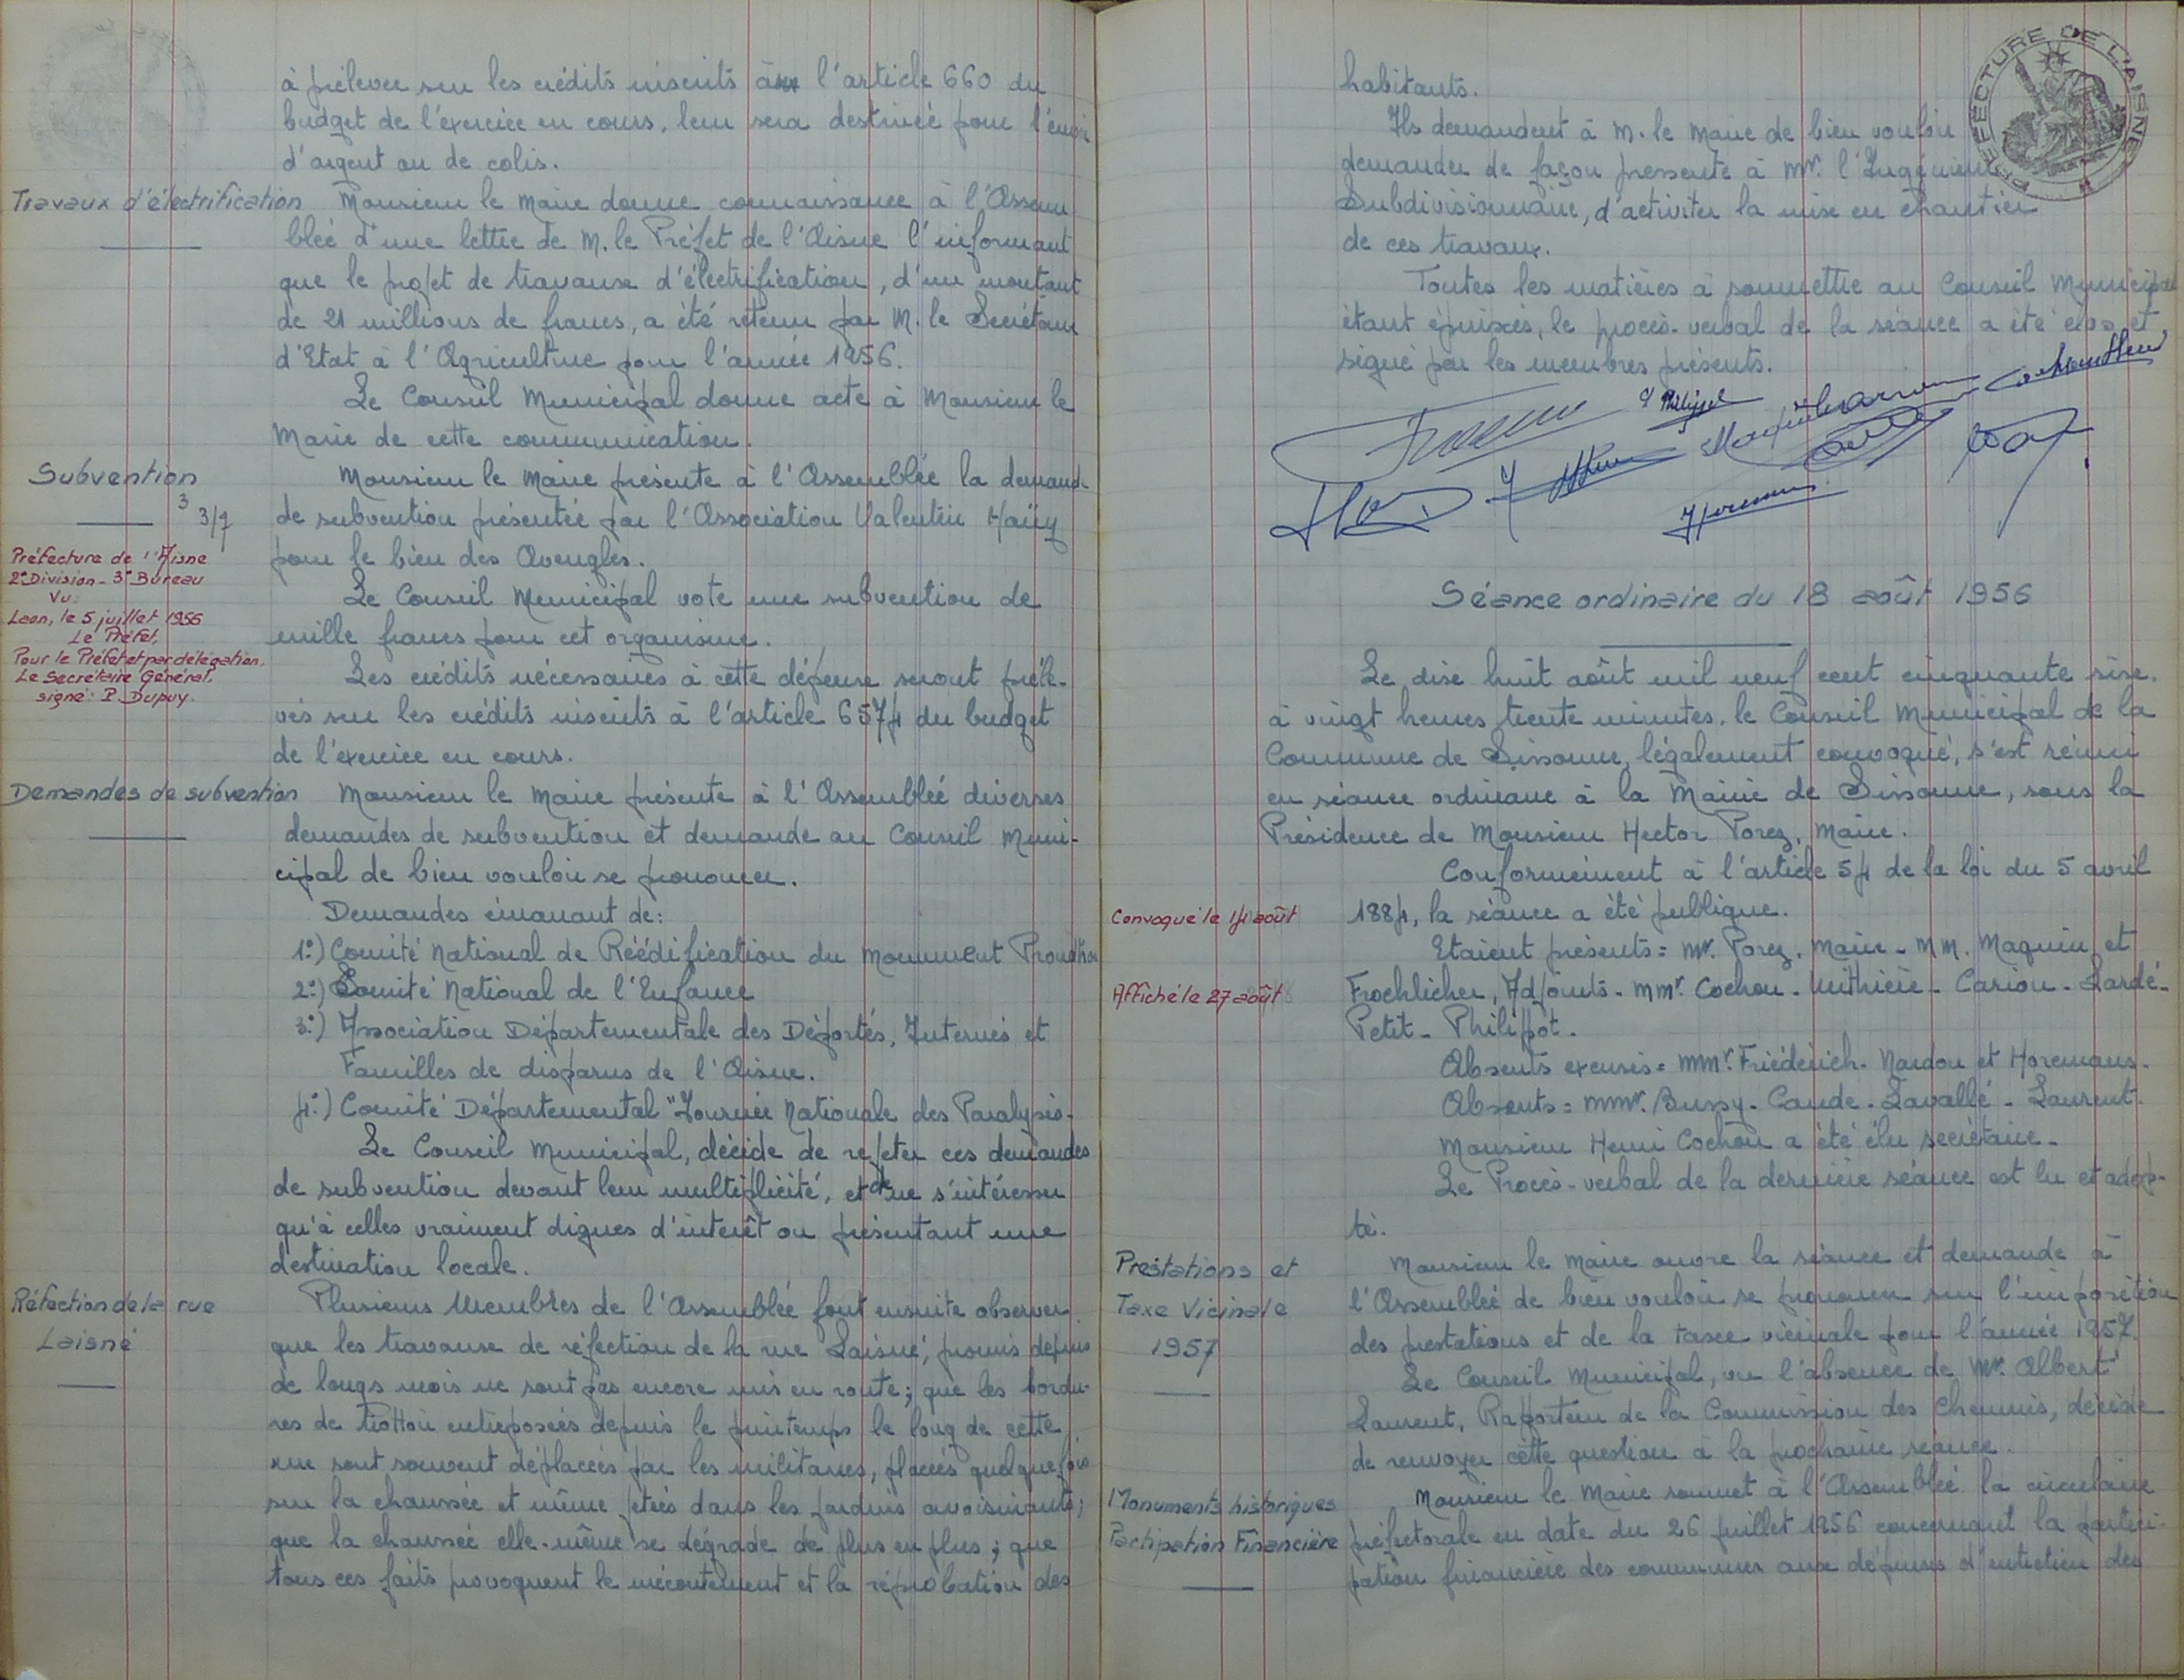 à prélever sur les crédits inscrits à l'article 660 du
budget de l'exercice en cours, leur sera destinée pour l'envoi
d'argent ou de colis.
Travaux d'électrification
Monsieur le Maire donne connaissance à l'Assem
blée d'une lettre de M. le Préfet de l'Aisne l'informant
que le projet de travaux d'électrification, d'un montant
de 21 millions de francs, a été retenu par M. le Secrétaire
d'Etat à l'Agriculture pour l'année 1956.
Le Conseil Municipal donne acte à Monsieur le
Maire de cette communication.
Subvention
3 3/7
Monsieur le Maire présente à l'Assemblée la demand-
de subvention présentée par l'Association Valentin Haüy
pour le bien des Aveugles.
Préfecture de l'Aisne
2e Division - 3e Bureau
Vu:
Laon, le 5 juillet 1956
Le Préfet,
Pour le Préfet et par délégation,
Le Secrétaire Général,
signé: P. Dupuy.
Le Conseil Municipal vote une subvention de
mille francs pour cet organisme.
Les crédits nécessaires à cette dépense seront préle-
vés sur les crédits inscrits à l'article 6574 du budget
de l'exercice en cours.
Demandes de subvention
Monsieur le Maire présente à l'Assemblée diverses
demandes de subvention et demande au Conseil Muni-
cipal de bien vouloir se prononcer.
Demandes émanant de:
1°) Comité National de Réédification du Monument Proudhon
2°) Comité National de l'Enfance
3°) Association Départementale des Déportés, Internés et
Familles de disparus de l'Aisne.
4°) Comité Départemental "Journée Nationale des Paralysés-
Le Conseil Municipal, décide de rejeter ces demandes
de subvention devant leur multiplicité, et de ne s'intéresser
qu'à celles vraiment dignes d'intérêt ou présentant une
destination locale.
Réfection de la rue
Laisné
Plusieurs Membres de l'Assemblée font ensuite observer
que les travaux de réfection de la rue Laisné, promis depuis
de longs mois ne sont pas encore mis en route; que les bordu-
res de trottoir entreposées depuis le printemps le long de cette
rue sont souvent déplacées par les militaires, placées quelquefois
sur la chaussée et même jetées dans les jardins avoisinants;
que la chaussée elle-même se dégrade de plus en plus; que
tous ces faits provoquent le mécontentement et la réprobation des
habitants.
PRÉFECTURE DE L'AISNE
Ils demandent à M. le Maire de bien vouloir
demander de façon pressente à Mr. l'Ingénieur
Subdivisionnaire, d'activiter la mise en chantier
de ces travaux.
Toutes les matières à soumettre au Conseil Municipal
étant épuisées, le procès-verbal de la séance a été clos et
signé par les membres présents.
Philippot
Séance ordinaire du 18 août 1956
Le dix huit août mil neuf cent cinquante six.
à vingt heures trente minutes, le Conseil Municipal de la
Commune de Sissonne, légalement convoqué, s'est réuni
en séance ordinaire à la Mairie de Sissonne, sous la
Présidence de Monsieur Hector Porez, Maire.
Conformément à l'article 54 de la loi du 5 avril
Convoqué le 14 août
1884, la séance a été publique.
Etaient présents = Mr. Porez, Maire - MM. Maquin et
Affiché le 27 août
Froehlicher, Adjoints - MMr. Cochon - Mithière - Carion - Lardé -
Petit - Philipot.
Absents excusés = MMr. Friédérich - Nardon et Horemans.
Absents = MMr. Bussy - Caude - Lavallé - Laurent.
Monsieur Henri Cochon a été élu secrétaire.
Le Procès-verbal de la dernière séance est lu et adop-
té.
Prestations et
Taxe Vicinale
1957
Monsieur le Maire ouvre la séance et demande à
l'Assemblée de bien vouloir se prononcer sur l'imposition
des prestations et de la taxe vicinale pour l'année 1957.
Le Conseil Municipal, vu l'absence de Mr. Albert
Laurent, Raporteur de la Commission des Chemins, décide
de renvoyer cette question à la prochaine séance.
Monuments historiques
Partipation Financière
Monsieur le Maire soumet à l'Assemblée la circulaire
préfectorale en date du 26 juillet 1956 concernant la partici-
pation financière des communes aux dépenses d'entretien des